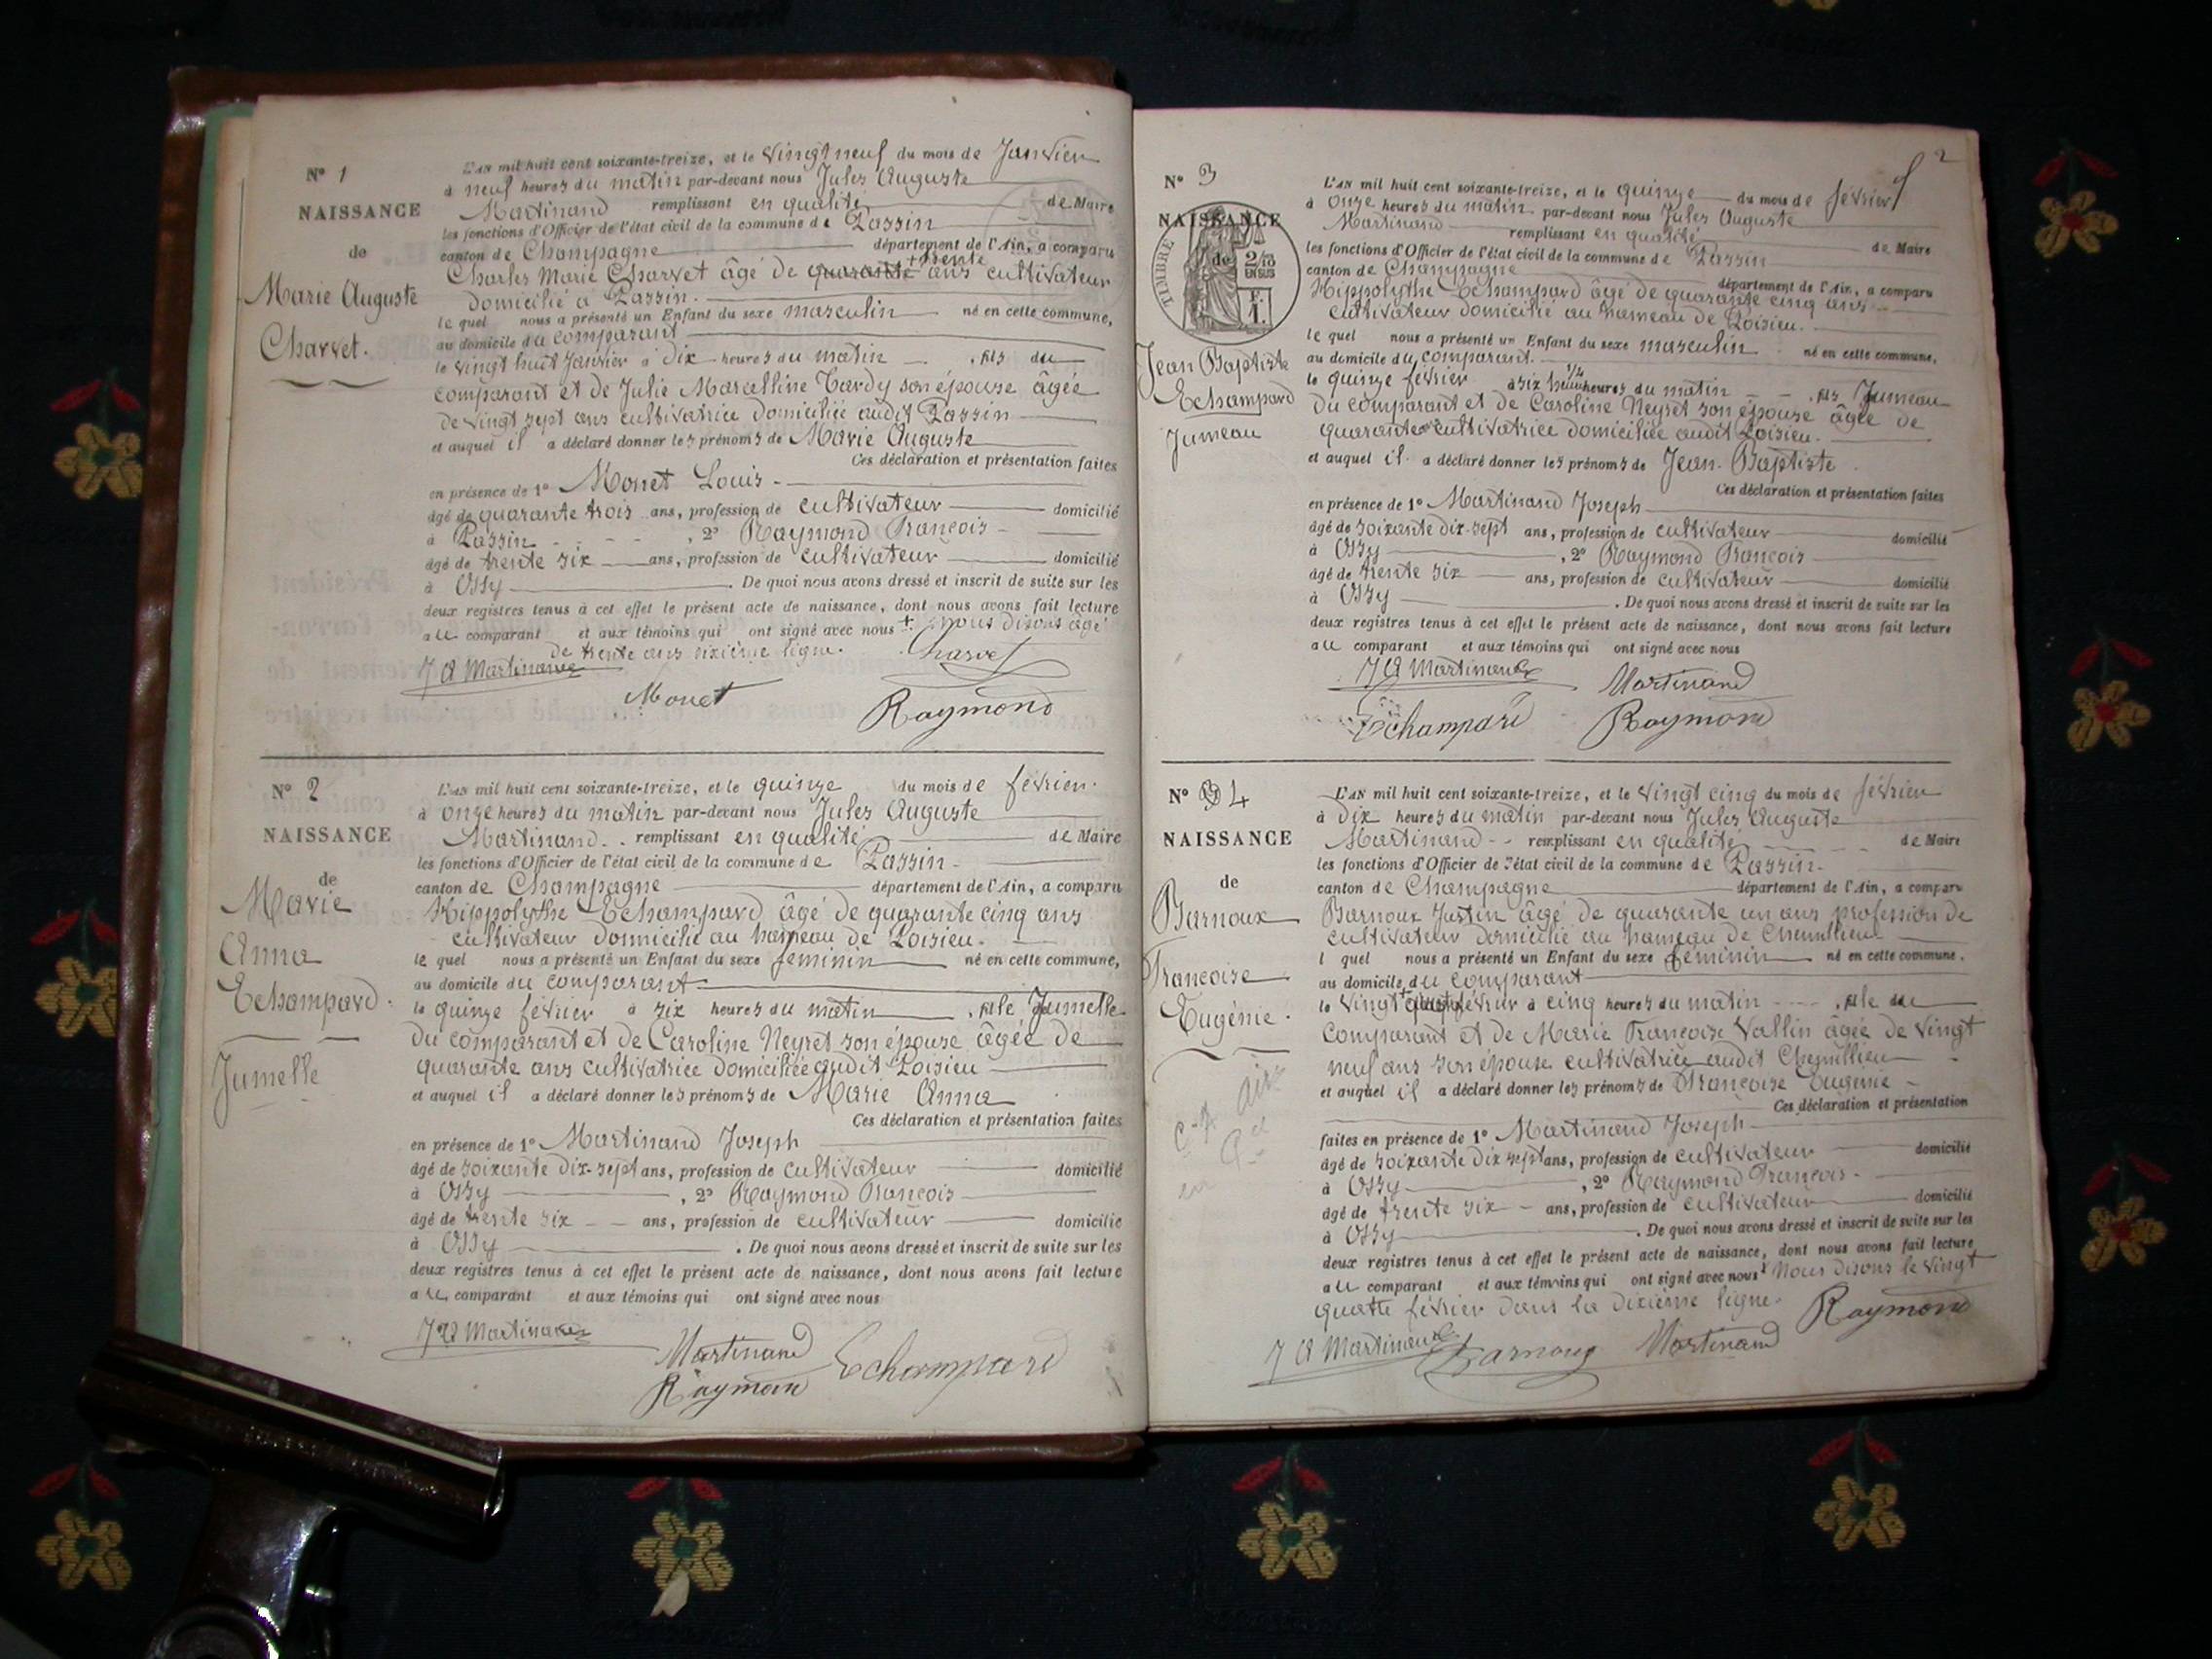 N° 1
NAISSANCE
de
Marie Auguste
Charvet.
L'AN mil huit cent soixante-treize, et le Vingt neuf du mois de Janvier
à neuf heures du matin par-devant nous Jules Auguste
Martinand remplissant en qualité de Maire
les fonctions d'Officier de l'état civil de la commune de Passin
canton de Champagne département de l'Ain, a comparu
Charles Marie Charvet âgé de quarante + trente ans cultivateur
domicilié à Passin.
le quel nous a présenté un Enfant du sexe masculin né en cette commune,
au domicile du comparant
le vingt huit Janvier à dix heures du matin , fils du
comparant et de Julie Marcelline Tardy son épouse âgée
de vingt sept ans cultivatrice domiciliée audit Passin
et auquel il a déclaré donner les prénoms de Marie Auguste
Ces déclaration et présentation faites
en présence de 1° Monet Louis
âgé de quarante trois ans, profession de cultivateur domicilié
à Passin , 2° Raymond François
âgé de trente six ans, profession de cultivateur domicilié
à Ossy . De quoi nous avons dressé et inscrit de suite sur les
deux registres tenus à cet effet le présent acte de naissance, dont nous avons fait lecture
au comparant et aux témoins qui ont signé avec nous + nous disons âgé
de trente ans sixième ligne.
J A Martinand
Charvet
Monet
Raymond
N° 2
NAISSANCE
de
Marie
Anna
Echampard
Jumelle
L'AN mil huit cent soixante-treize, et le quinze du mois de février
à onze heures du matin par-devant nous Jules Auguste
Martinand remplissant en qualité de Maire
les fonctions d'Officier de l'état civil de la commune de Passin
canton de Champagne département de l'Ain, a comparu
Hippolythe Echampard âgé de quarante cinq ans
cultivateur domicilié au hameau de Poisieu.
le quel nous a présenté un Enfant du sexe féminin né en cette commune,
au domicile du comparant
le quinze février à six heures du matin , fille Jumelle
du comparant et de Caroline Neyret son épouse âgée de
quarante ans cultivatrice domiciliée audit Poisieu
et auquel il a déclaré donner les prénoms de Marie Anna
Ces déclaration et présentation faites
en présence de 1° Martinand Joseph
âgé de soixante dix-sept ans, profession de cultivateur domicilié
à Ossy , 2° Raymond François
âgé de trente six ans, profession de cultivateur domicilié
à Ossy . De quoi nous avons dressé et inscrit de suite sur les
deux registres tenus à cet effet le présent acte de naissance, dont nous avons fait lecture
au comparant et aux témoins qui ont signé avec nous
J A Martinand
Martinand
Echampard
Raymond
2
N° 3
NAISSANCE
de
TIMBRE
2/10
EN SUS
Jean Baptiste
Echampard
Jumeau
L'AN mil huit cent soixante-treize, et le quinze du mois de février
à onze heures du matin par-devant nous Jules Auguste
Martinand remplissant en qualité de Maire
les fonctions d'Officier de l'état civil de la commune de Passin
canton de Champagne département de l'Ain, a comparu
Hippolythe Echampard âgé de quarante cinq ans
cultivateur domicilié au hameau de Poisieu.
le quel nous a présenté un Enfant du sexe masculin né en cette commune,
au domicile du comparant.
le quinze février à six 1/2 heures du matin , fils Jumeau
du comparant et de Caroline Neyret son épouse âgée de
quarante cultivatrice domiciliée audit Poisieu.
et auquel il a déclaré donner les prénoms de Jean-Baptiste
Ces déclaration et présentation faites
en présence de 1° Martinand Joseph
âgé de soixante dix-sept ans, profession de cultivateur domicilié
à Ossy , 2° Raymond François
âgé de trente six ans, profession de cultivateur domicilié
à Ossy . De quoi nous avons dressé et inscrit de suite sur les
deux registres tenus à cet effet le présent acte de naissance, dont nous avons fait lecture
au comparant et aux témoins qui ont signé avec nous
J A Martinand
Martinand
Echampard
Raymond
N° 4
NAISSANCE
de
Barnoux
Françoise
Eugénie.
L'AN mil huit cent soixante-treize, et le vingt cinq du mois de février
à dix heures du matin par-devant nous Jules Auguste
Martinand remplissant en qualité de Maire
les fonctions d'Officier de l'état civil de la commune de Passin.
canton de Champagne département de l'Ain, a comparu
Barnoux Justin âgé de quarante un ans profession de
cultivateur domicilié au hameau de Chemillieu
l quel nous a présenté un Enfant du sexe féminin né en cette commune,
au domicile du comparant
le vingt + quatre février à cinq heures du matin , fille du
comparant et de Marie Françoise Vallin âgée de vingt
neuf ans son épouse cultivatrice audit Chemillieu
et auquel il a déclaré donner les prénoms de Françoise Eugénie
Ces déclaration et présentation
faites en présence de 1° Martinand Joseph
âgé de soixante dix sept ans, profession de cultivateur domicilié
à Ossy , 2° Raymond François
âgé de trente six ans, profession de cultivateur domicilié
à Ossy . De quoi nous avons dressé et inscrit de suite sur les
deux registres tenus à cet effet le présent acte de naissance, dont nous avons fait lecture
au comparant et aux témoins qui ont signé avec nous + Nous disons le vingt
quatre février dans la dixième ligne.
Raymond
J A Martinand
Barnoux
Martinand